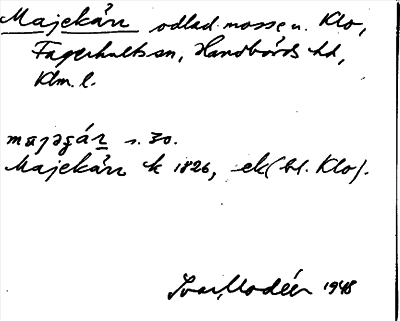 Majekärr odlad mosse u. Klo,
Fagerhults sn, Handbörds hd,
Klm. l.
majəgár s. 30.
Majekärr k 1826, ek (bl. Klo).
Ivar Modéer 1948